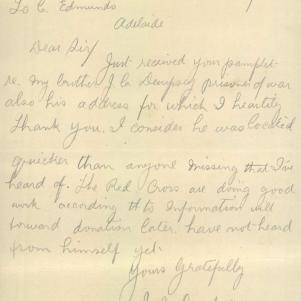 To C. Edmunds
Adelaide
Dear Sir/
Just received your pamplet
re. my brother J. C. Dempsey prisoner of war
also his address for which I heartily
Thank you. I consider he was located
quicker than anyone missing that I've
heard of. The Red Cross are doing good
work according to Information will
forward donation later. have not heard
from himself yet.
Yours Gratefully